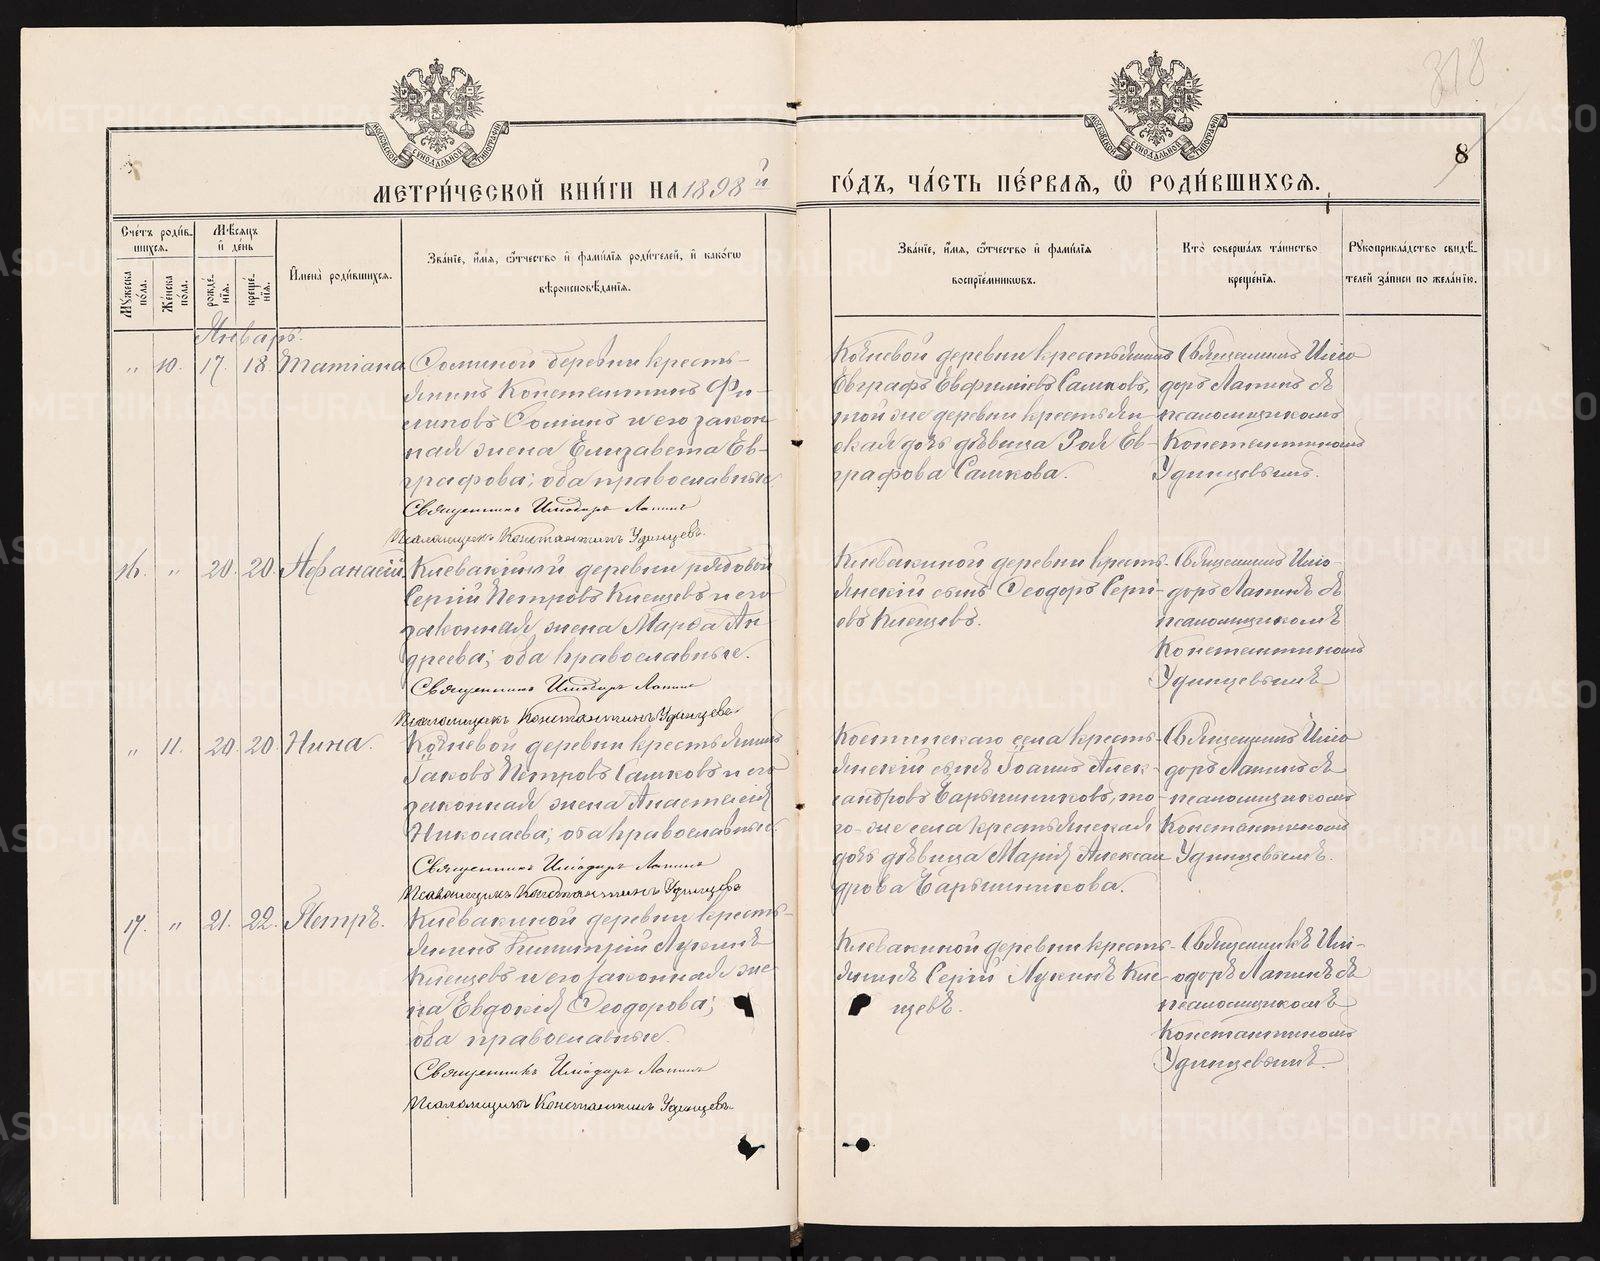 318
8
МОСКОВСКОЙ СУНОДАЛЬНОЙ ТИПОГРАФІИ
МОСКОВСКОЙ СУНОДАЛЬНОЙ ТИПОГРАФІИ
МЕТРИ́ЧЕСКОЙ КНИ́ГИ НА 1898й ГО́ДЪ, ЧА́СТЬ ПЕ́РВАѦ, Ѡ҆ РОДИ́ВШИХСѦ.
Сче́тъ роди́вшихсѧ.
Мꙋ́жеска по́ла.
Же́нска по́ла.
Мѣ́сѧцъ и҆ де́нь
рожде́нїѧ.
креще́нїѧ.
И҆мена̀ роди́вшихсѧ.
Зва́нїе, и҆́мѧ, ѻ҆́тчество и҆ фамі́лїѧ роди́телей, и҆ како́гѡ
вѣроисповѣ́данїѧ.
Зва́нїе, и҆́мѧ, ѻ҆́тчество и҆ фамі́лїѧ
воспрїе́мникѡвъ.
Кто̀ соверша́лъ та́инство
креще́нїѧ.
Рꙋкоприкла́дство свидѣ́телей за́писи по жела́нїю.
Январь.
" 10. 17. 18. Татіана
Соминой деревни кресть-
янинъ Константинъ Фи-
липовъ Соминъ и его закон
ная жена Елизавета Ев-
графова; оба православные
Священникъ Исидоръ Лапинъ
Псаломщикъ Константинъ Удинцевъ.
Кочневой деревни крестьянинъ
Евграфъ Евфиміевъ Самковъ,
той же деревни крестьян-
ская дочь дѣвица Зоя Ев-
графова Самкова.
Священникъ Исидоръ
Лапинъ съ
псаломщикомъ
Константиномъ
Удинцевымъ.
16. " 20. 20. Афанасій.
Клевакиной деревни рядовой
Сергій Петровъ Клещевъ и его
законная жена Марѳа Ан
дреева; оба православные.
Священникъ Исидоръ Лапинъ
Псаломщикъ Константинъ Удинцевъ
Клевакиной деревни кресть-
янскій сынъ Ѳеодоръ Серги-
евъ Клещевъ.
Священникъ Иси-
доръ Лапинъ съ
псаломщикомъ
Константиномъ
Удинцевымъ
" 11. 20. 20. Нина.
Кочневой деревни крестьянинъ
Іаковъ Петровъ Самковъ и его
законная жена Анастасія
Николаева; оба православные.
Священникъ Исидоръ Лапинъ
Псаломщикъ Константинъ Удинцевъ
Костинскаго села кресть-
янскій сынъ Іоаннъ Алек-
сандровъ Барышниковъ, то-
го-же села крестьянская
дочь дѣвица Марія Алексан
дрова Барышникова.
Священникъ Исидоръ
Лапинъ съ
псаломщикомъ
Константиномъ
Удинцевымъ.
17. " 21. 22. Петръ.
Клевакиной деревни кресть-
янинъ Димитрій Лукинъ
Клещевъ и его законная же-
на Евдокія Ѳеодорова;
оба православные.
Священникъ Исидоръ Лапинъ
Псаломщикъ Константинъ Удинцевъ.
Клевакиной деревни кресть-
янинъ Сергій Лукинъ Кле-
щевъ.
Священникъ Иси-
доръ Лапинъ съ
псаломщикомъ
Константиномъ
Удинцевымъ.